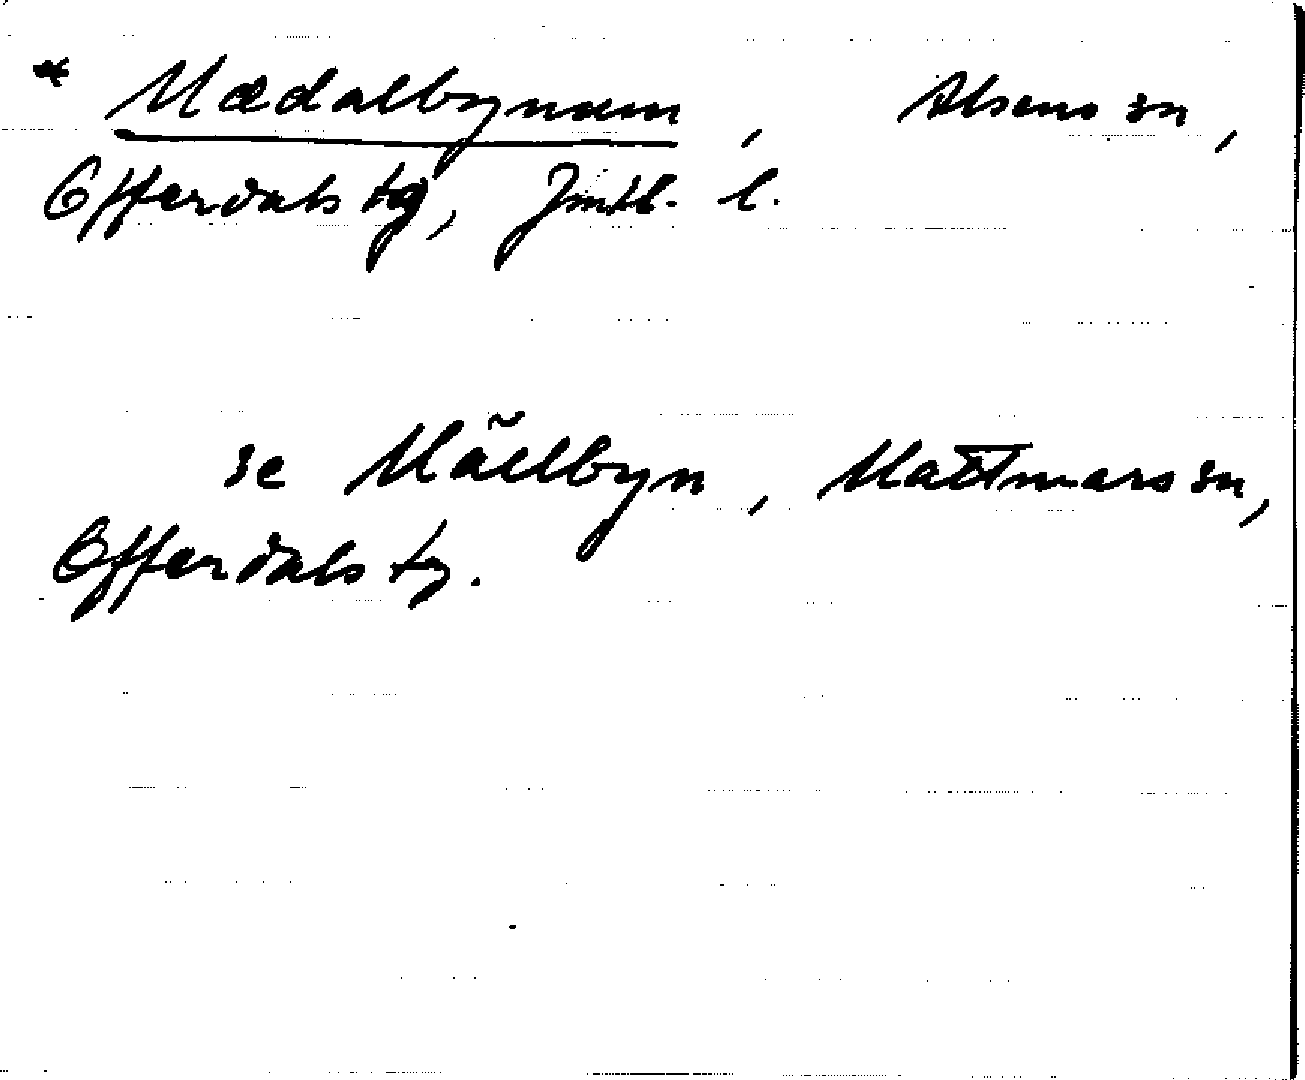 * Mædalbynum, Alsens sn,
Offerdals tg, Jmtl. l.
se Mällbyn, Mattmars sn,
Offerdals tg.